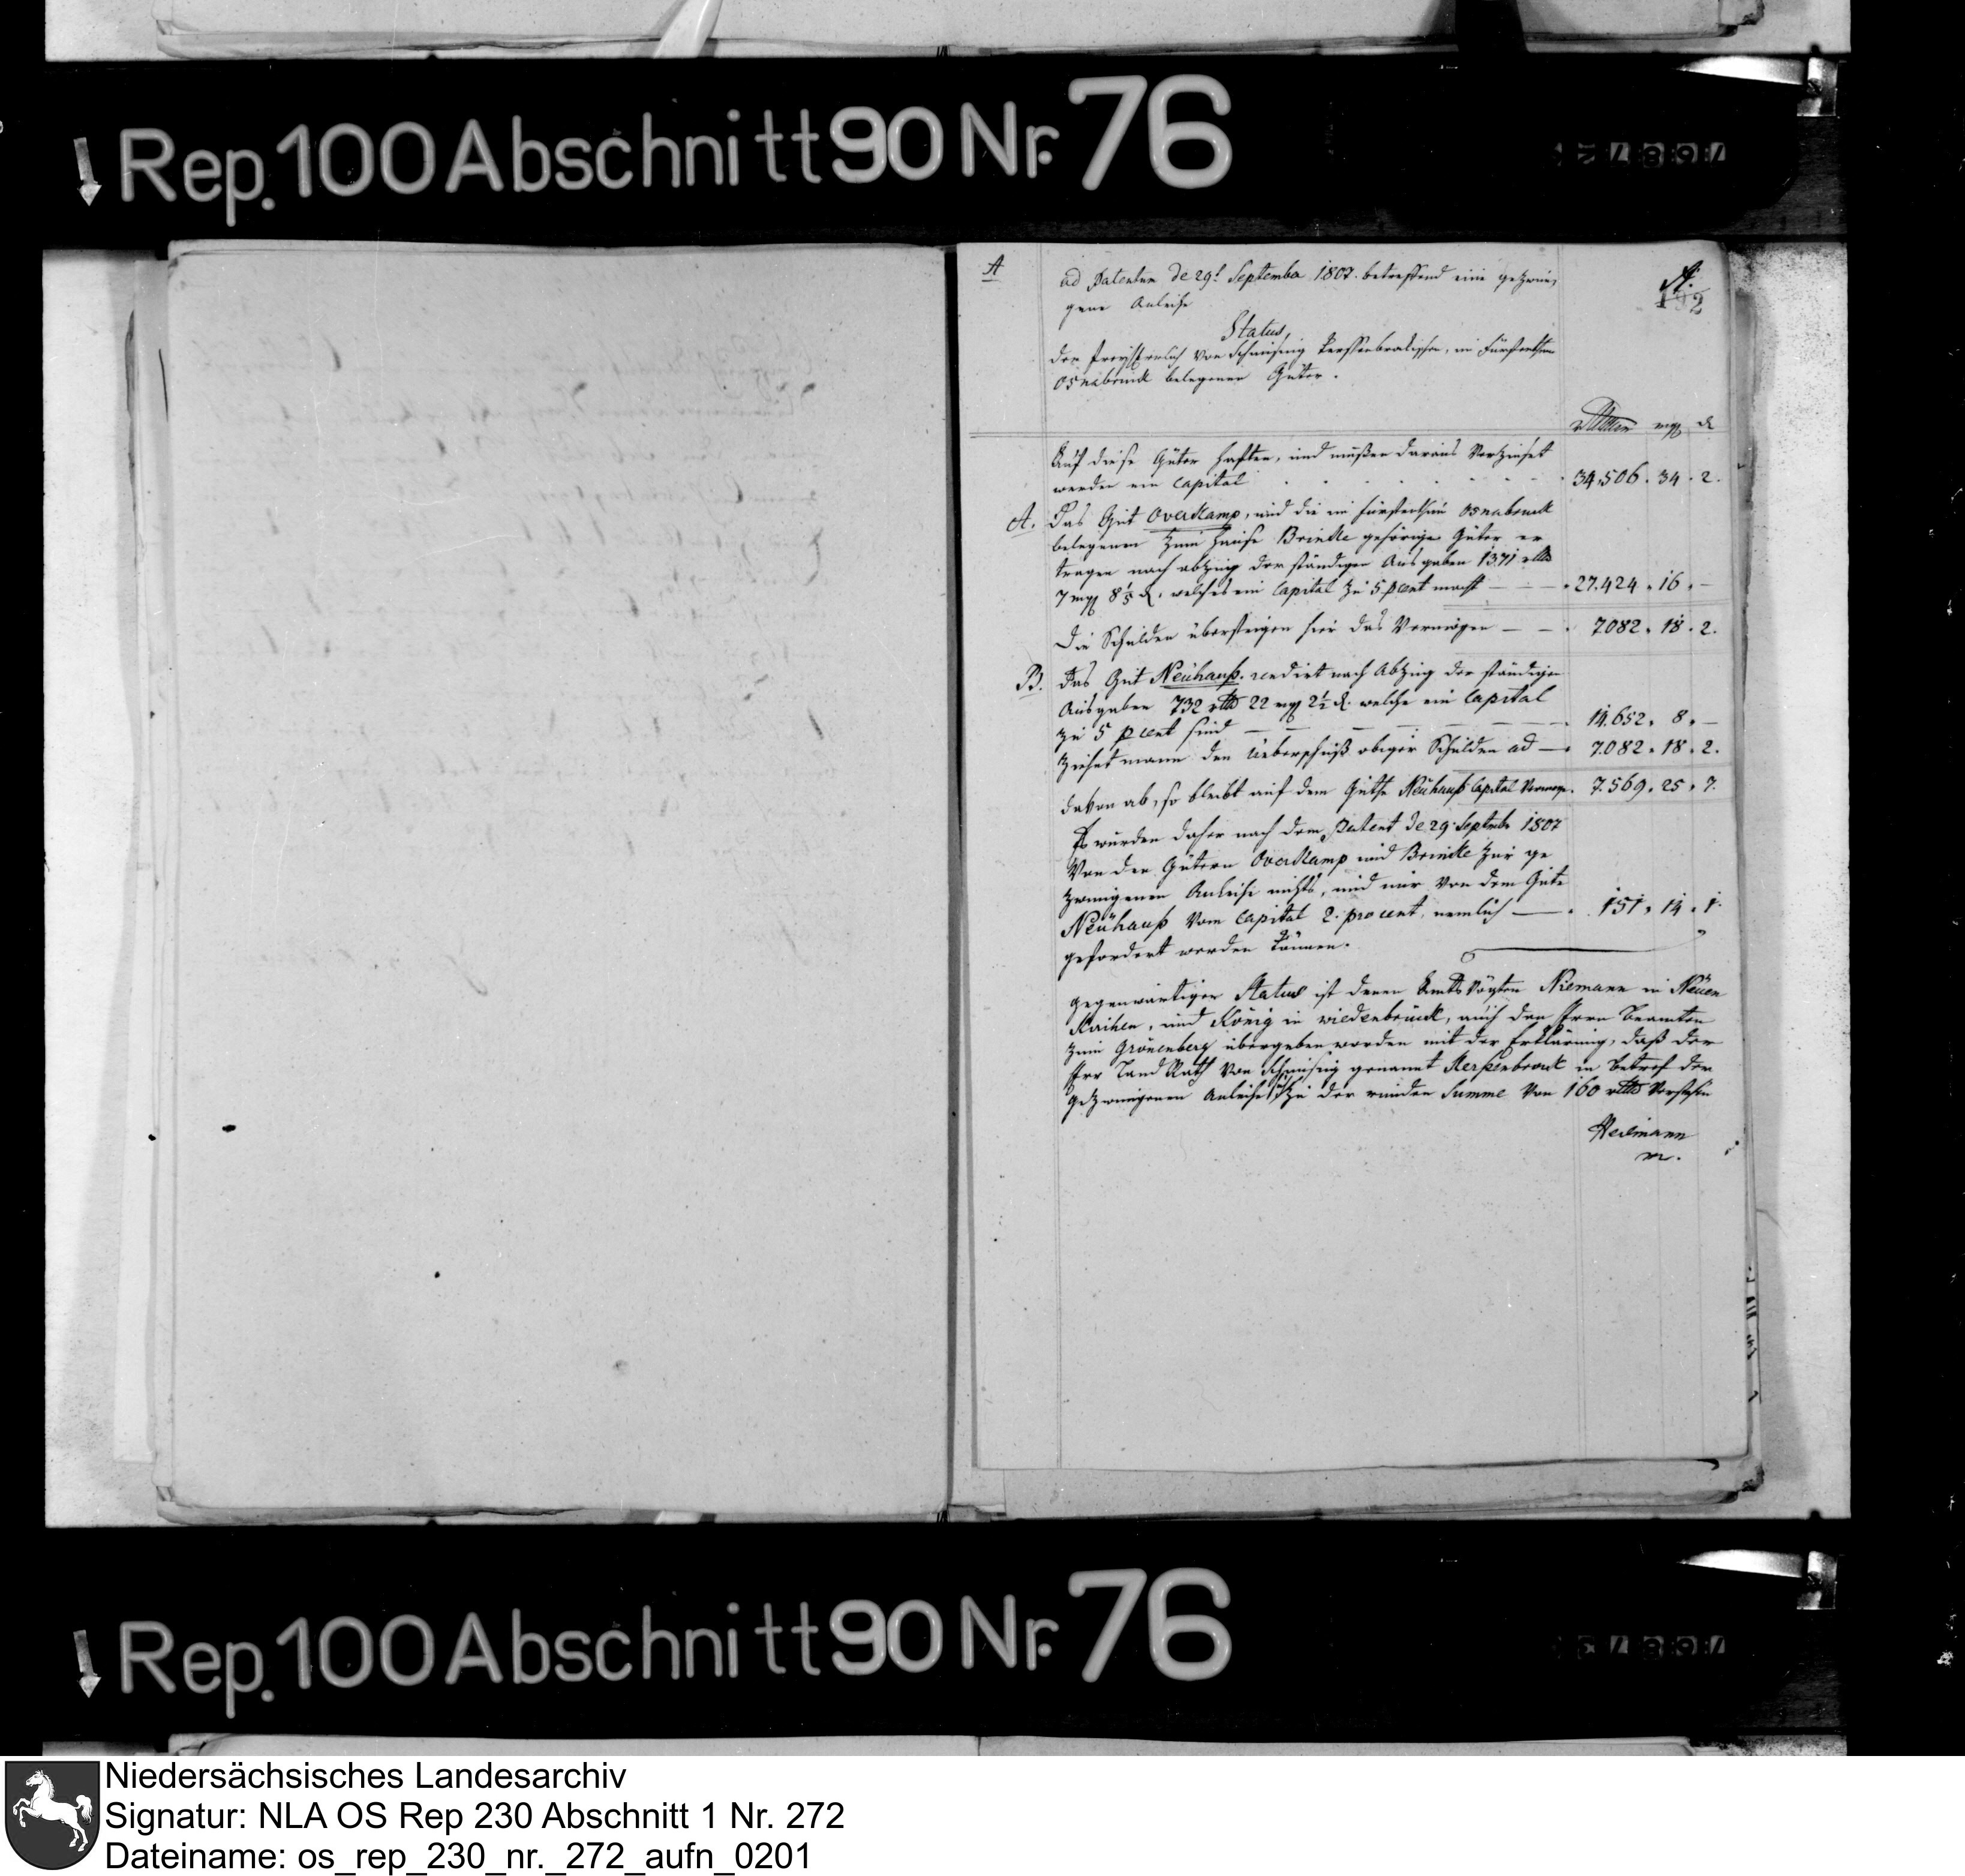 Rep. 100 Abschnitt 90 Nr. 76
A
ad Patentum de 29t September 1807. betreffend eine gezwun,
gene Anleihe
A.
192
Status,
der Freyherrlich von Schmising Kerssenbrokischen, im Fürstenthum
Osnabrück belegenen Güter.
Rthler mgg d
Auf diese Güter haften, und müßen daraus Verzinset
werden ein Capital 34,506. 34. 2.
A. Das Gut Overkamp, und die im Fürstenthum Osnabruck
belegenen zum Hause Brincke gehörige Güter er
tragen nach abzug der ständigen Ausgaben 1371 rthlr
7 mgg 8 1/5 d, welches ein Capital zu 5 pCent macht 27.424. 16. —
Die Schulden übersteigen hier das Vermögen 7082. 18. 2.
B. Das Gut Neuhauß. rendirt nach Abzug der ständigen
Ausgaben 732 rthlr 22 mgg 2 1/2 d. welche ein Capital
zu 5 p cent sind 14.652. 8. —
Ziehet mann den Ueberschuß obiger Schulden ad 7.082. 18. 2.
davon ab, so bleibt auf dem Guthe Neuhauß Capital Vermoge. 7.569. 25. 7.
Es würden daher nach dem Patent de 29. Septembr 1807
Von den Gütern Overkamp und Brincke zur ge
zwungenen Anleihe nichts, und nur Von dem Gute
Neuhauß Vom Capital 2. procent, nemlich 151. 14. 1.
gefordert werden können.
Gegenwärtiger Status ist denen Amts Vögten Niemann in Neuen
Kirchen, und König in wiedenbrück, auch den Herrn Beamten
zum Grönenberg übergeben worden mit der Erklärung, daß der
Herr Land Rath Von Schmising genannt Kerßenbrock in Betref der
gezwungenen Anleihe sich zu der runden Summe Von 160 rthlr Verstehe
Heilmann
Rep. 100 Abschnitt 90 Nr. 76
Niedersächsisches Landesarchiv
Signatur: NLA OS Rep 230 Abschnitt 1 Nr. 272
Dateiname: os_rep_230_nr._272_aufn_0201